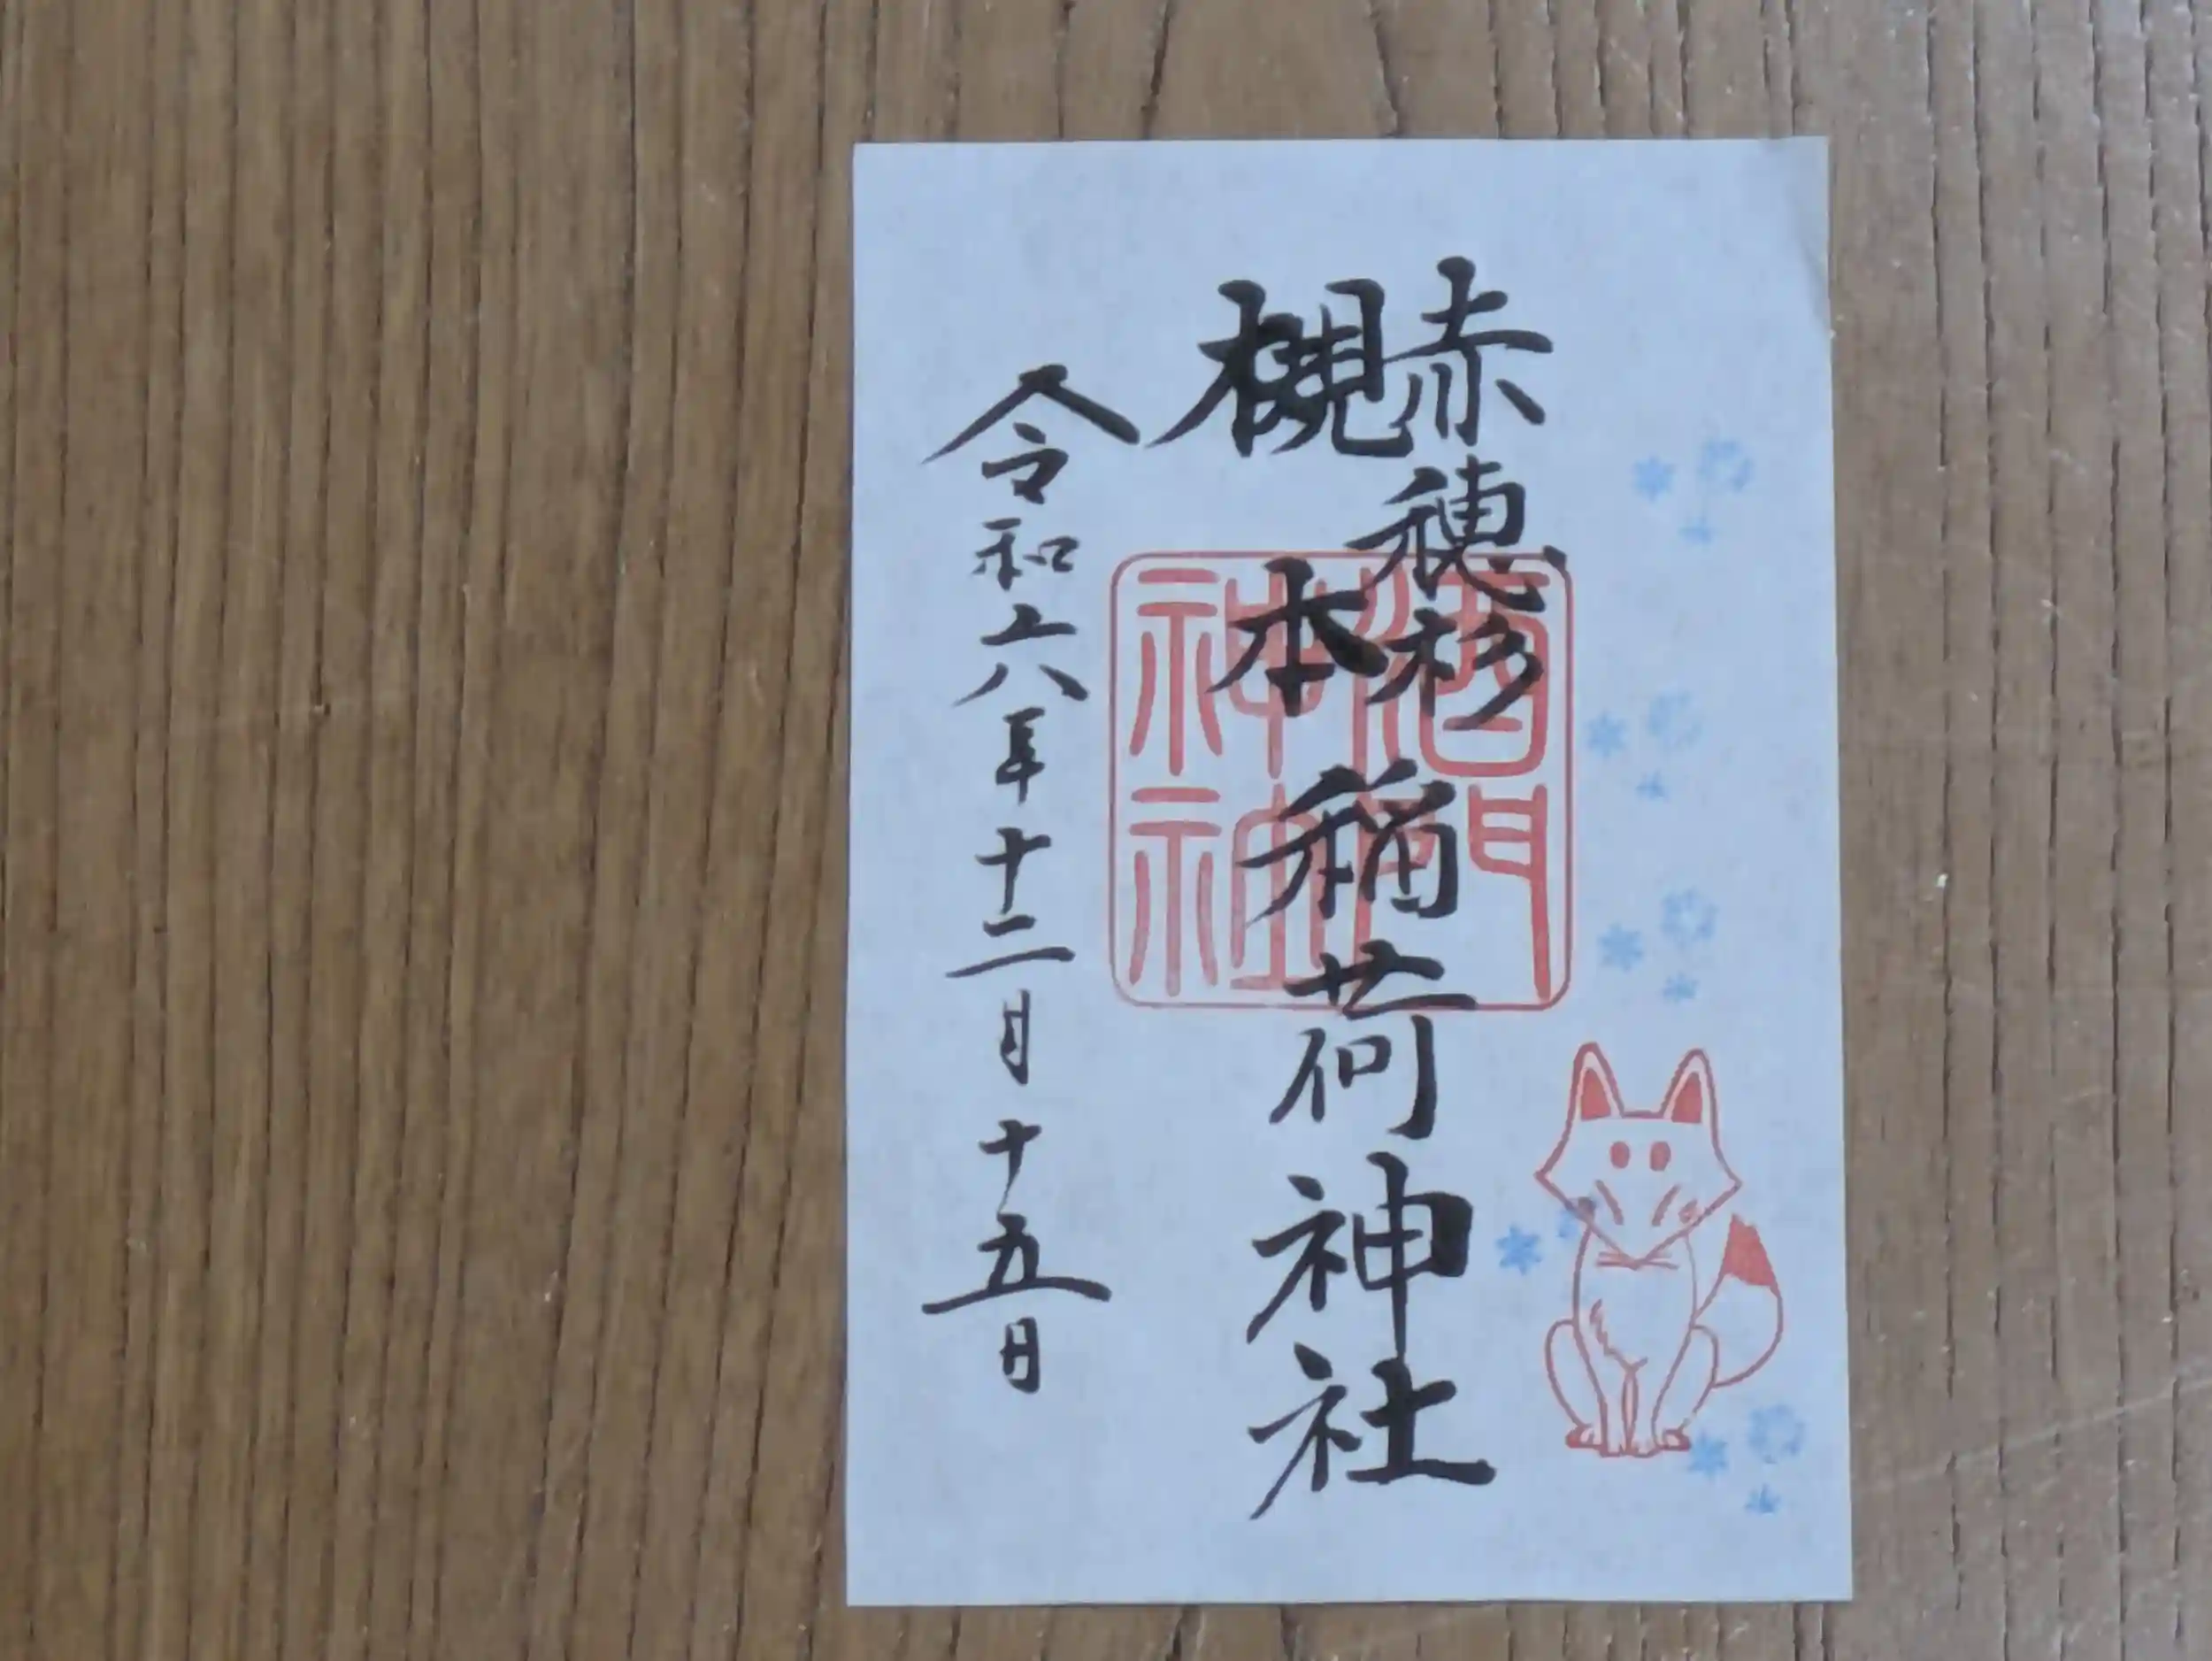 赤穂杉
槻本
稲荷神社
令和六年十二月十五日
酒門
神社